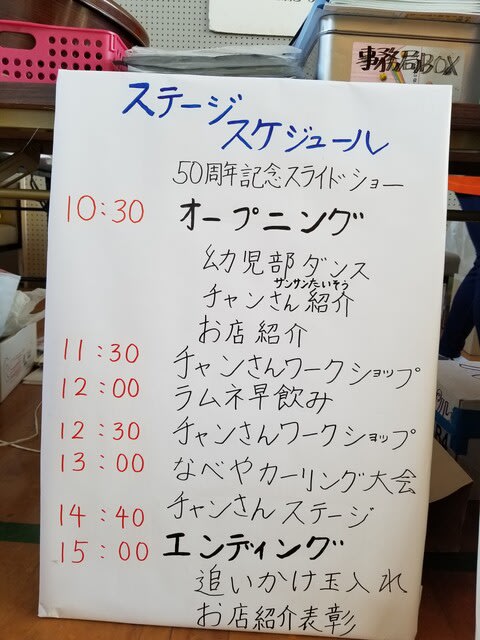 事務局BOX
ステージ
スケジュール
50周年記念スライドショー
10:30 オープニング
幼児部ダンス
サンサンたいそう
チャンさん紹介
お店紹介
11:30 チャンさんワークショップ
12:00 ラムネ早飲み
12:30 チャンさんワークショップ
13:00 なべやカーリング大会
14:40 チャンさんステージ
15:00 エンディング
追いかけ玉入れ
お店紹介表彰